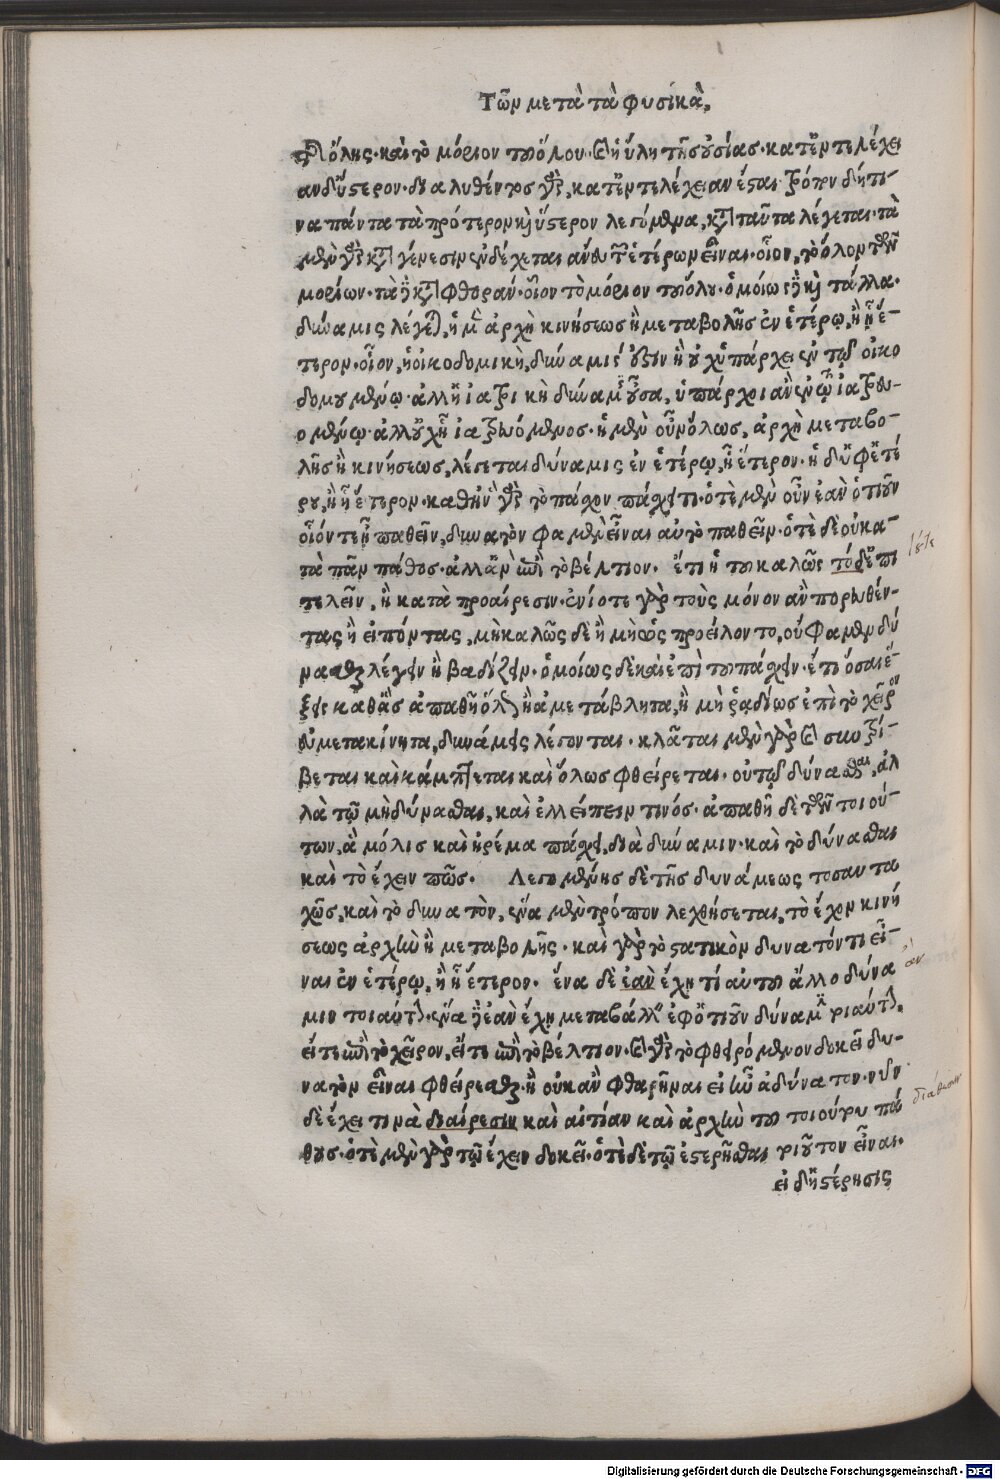 Τῶν μετὰ τὰ φυσικὰ.
τῆς ὅλης· καὶ τὸ μόριον τοῦ ὅλου· καὶ ἡ ὕλη τῆς οὐσίας· κατ' ἐντελέχει
αν δ' ὕστερον· διαλυθέντος γὰρ, κατ' ἐντελέχειαν ἔσται· τρόπον δή τι-
να πάντα τὰ πρότερον κὶ ὕστερον λεγόμενα, κατὰ ταῦτα λέγεται· τὰ
μὲν γὰρ κατὰ γένεσιν ἐνδέχεται ἄνευ τῶν ἑτέρων εἶναι· οἷον, τὸ ὅλον τῶν
μορίων· τὰ δὲ κατὰ φθοράν· οἷον τὸ μόριον τοῦ ὅλου· ὁμοίως δὲ κὶ τἆλλα·
δύναμις λέγεται, ἡ μὲν ἀρχὴ κινήσεως ἢ μεταβολῆς ἐν ἑτέρῳ, ἢ ᾗ ἕ-
τερον· οἷον, ἡ οἰκοδομικὴ, δύναμίς ἐστιν ἣ οὐχ ὑπάρχει ἐν τῷ οἰκο
δομουμένῳ· ἀλλ' ἡ ἰατρικὴ δύναμις οὖσα, ὑπάρχοι ἂν ἐν τῷ ἰατρευ-
ομένῳ· ἀλλ' οὐχ ᾗ ἰατρευόμενος· ἡ μὲν οὖν ὅλως, ἀρχὴ μεταβο-
λῆς ἢ κινήσεως, λέγεται δύναμις ἐν ἑτέρῳ, ᾗ ἕτερον· ἡ δ' ὑφ' ἑτέ
ρου, ἢ ᾗ ἕτερον· καθ' ἣν γὰρ τὸ πάχον πάχει τι· ὁτὲ μὲν οὖν ἐὰν ὁτιοῦν
οἷόν τε ᾖ παθεῖν, δυνατὸν φαμὲν εἶναι αὐτὸ παθεῖν· ὁτὲ δὲ οὐ κα-
τὰ πᾶν πάθος· ἀλλ' ἂν ἐπὶ τὸ βέλτιον. ἔτι ἡ τοῦ καλῶς τόδ' ἐπι
τελεῖν, ἢ κατὰ προαίρεσιν· ἐνίοτε γὰρ τοὺς μόνον ἂν πορευθέν-
τας ἢ εἰπόντας, μὴ καλῶς δὲ ἢ μὴ ὡς προείλοντο, οὔ φαμεν δύ
νασθαι λέγειν ἢ βαδίζειν· ὁμοίως δὲ καὶ ἐπὶ τοῦ πάχειν· ἔτι ὅσαι ἕ-
ξεις καθ' ἃς ἀπαθῆ ὅλως ἢ ἀμετάβλητα, ἢ μὴ ῥᾳδίως ἐπὶ τὸ χεῖρον
εὐμετακίνητα, δυνάμεις λέγονται· κλᾶται μὲν γὰρ καὶ συντρί-
βεται καὶ κάμπτεται καὶ ὅλως φθείρεται· οὐ τῷ δύνασθαι, ἀλ
λὰ τῷ μὴ δύνασθαι, καὶ ἐλλείπειν τινός· ἀπαθῆ δὲ τῶν τοιού-
των, ἃ μόλις καὶ ἠρέμα πάχει, διὰ δύναμιν· καὶ τὸ δύνασθαι
καὶ τὸ ἔχειν πῶς. Λεγομένης δὲ τῆς δυνάμεως τοσαυτα
χῶς, καὶ τὸ δυνατὸν, ἕνα μὲν τρόπον λεχθήσεται, τὸ ἔχον κινή
σεως ἀρχὴν ἢ μεταβολῆς· καὶ γὰρ τὸ στατικὸν δυνατόν τι εἶ-
ναι ἐν ἑτέρῳ, ἢ ᾗ ἕτερον. ἕνα δὲ ἐὰν ἔχῃ τί αὐτοῦ ἄλλο δύνα
μιν τοιαύτην· ἕνα δὲ ἐὰν ἔχῃ μεταβάλλειν ἐφ' ὁτιοῦν δύναμιν τοιαύτην,
εἴτε ἐπὶ τὸ χεῖρον, εἴτε ἐπὶ τὸ βέλτιον· καὶ γὰρ τὸ φθειρόμενον δοκεῖ δυ-
νατὸν εἶναι φθείρεσθαι· ἢ οὐκ ἂν φθαρῆναι εἰ ἦν ἀδύνατον· νῦν
δὲ ἔχει τινὰ διαίρεσιν καὶ αἰτίαν καὶ ἀρχὴν τοῦ τοιούτου πά
θους· ὁτὲ μὲν γὰρ τῷ ἔχειν δοκεῖ· ὁτὲ δὲ τῷ ἐστερῆσθαι τοιοῦτον εἶναι·
εἰ δ' ἡ στέρησις
ὂν
διάθεσιν
Digitalisierung gefördert durch die Deutsche Forschungsgemeinschaft - DFG